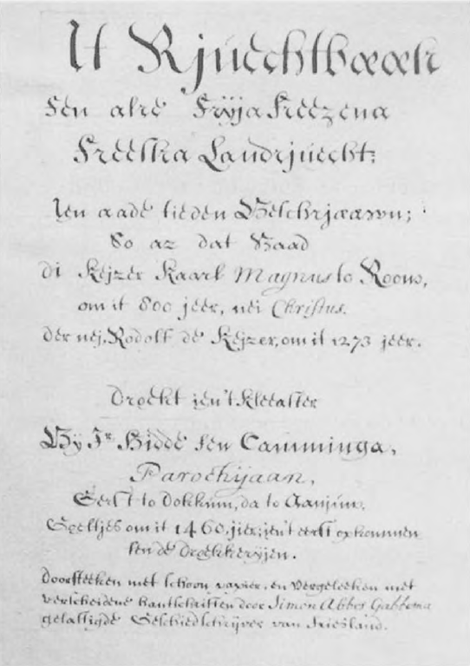 It Rjuechtbœœk
fen alre Fryja Freezena
Freeska Landrjuecht;
Ien aade tieden Beschrjœœwn;
So az dat Baad
di Kejzer Kaarl Magnus to Room,
om it 800 jeer, nei Christus.
der nej, Rodolf de Kejzer, om it 1273 jeer.
Droekt ijen't Kleeaster
By Jr. Hidde fen Camminga,
Parochijaan,
Eerst to Dokkum, da to Aanjum.
Speltjes om it 1460. jier; ijen't eerst opkommen
fen de Droekkeryjen.
Doorsteeken met schoon papier, en vergeleeken met
verscheidene handschriften door Simon Abbes Gabbema
gelastigde Geschiedschrijver van Friesland.